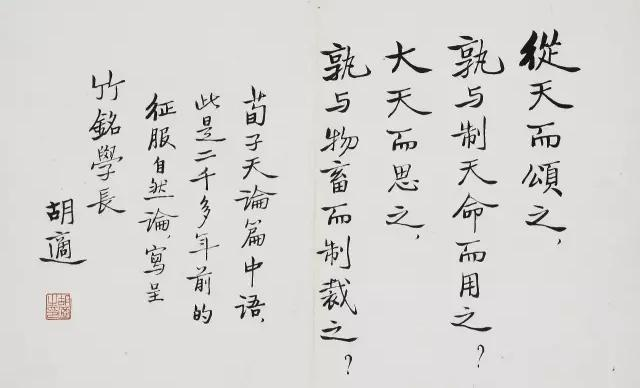 從天而頌之，
孰与制天命而用之？
大天而思之，
孰与物畜而制裁之？
荀子天論篇中语，
此是二千多年前的
征服自然論，寫呈
竹銘學長
胡適